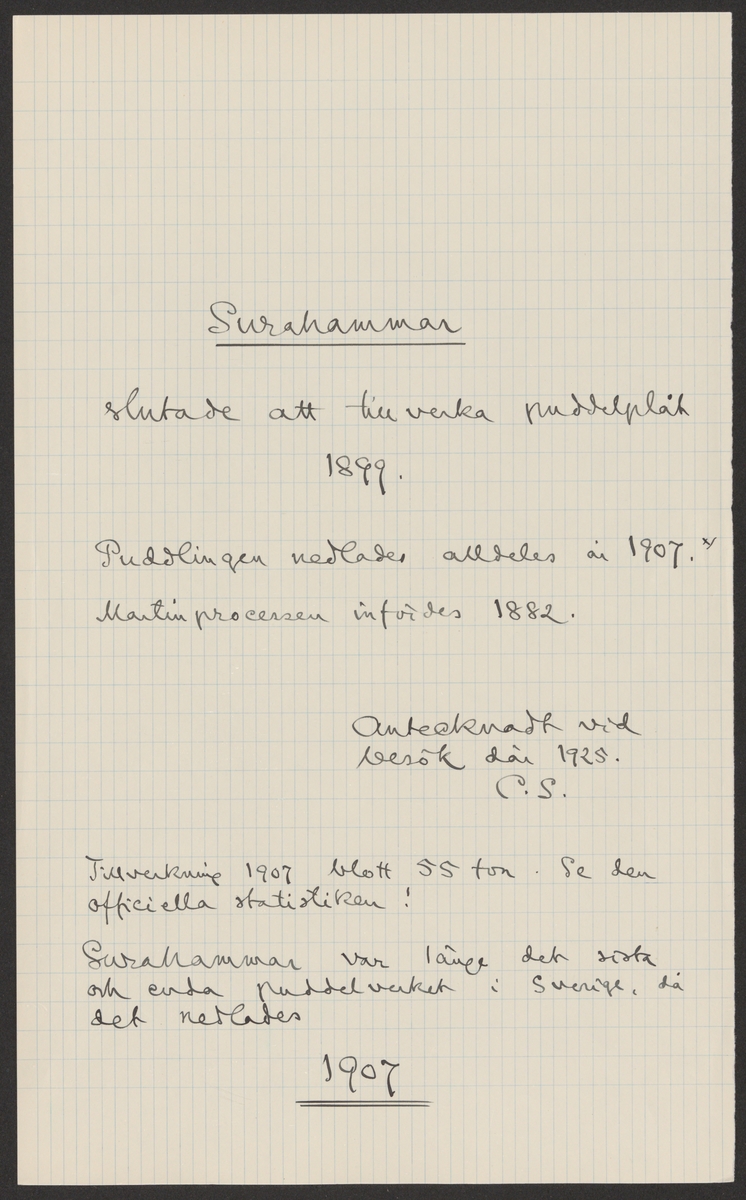 Surahammar
slutade att tillverka puddelplåt
1899.
Puddlingen nedlades alldeles år 1907. x/
Martinprocessen infördes 1882.
Antecknadt vid
besök där 1925.
C. S.
Tillverkning 1907 blott 55 ton. Se den
officiella statistiken!
Surahammar var länge det sista
och enda puddelverket i Sverige, då
det nedlades
1907